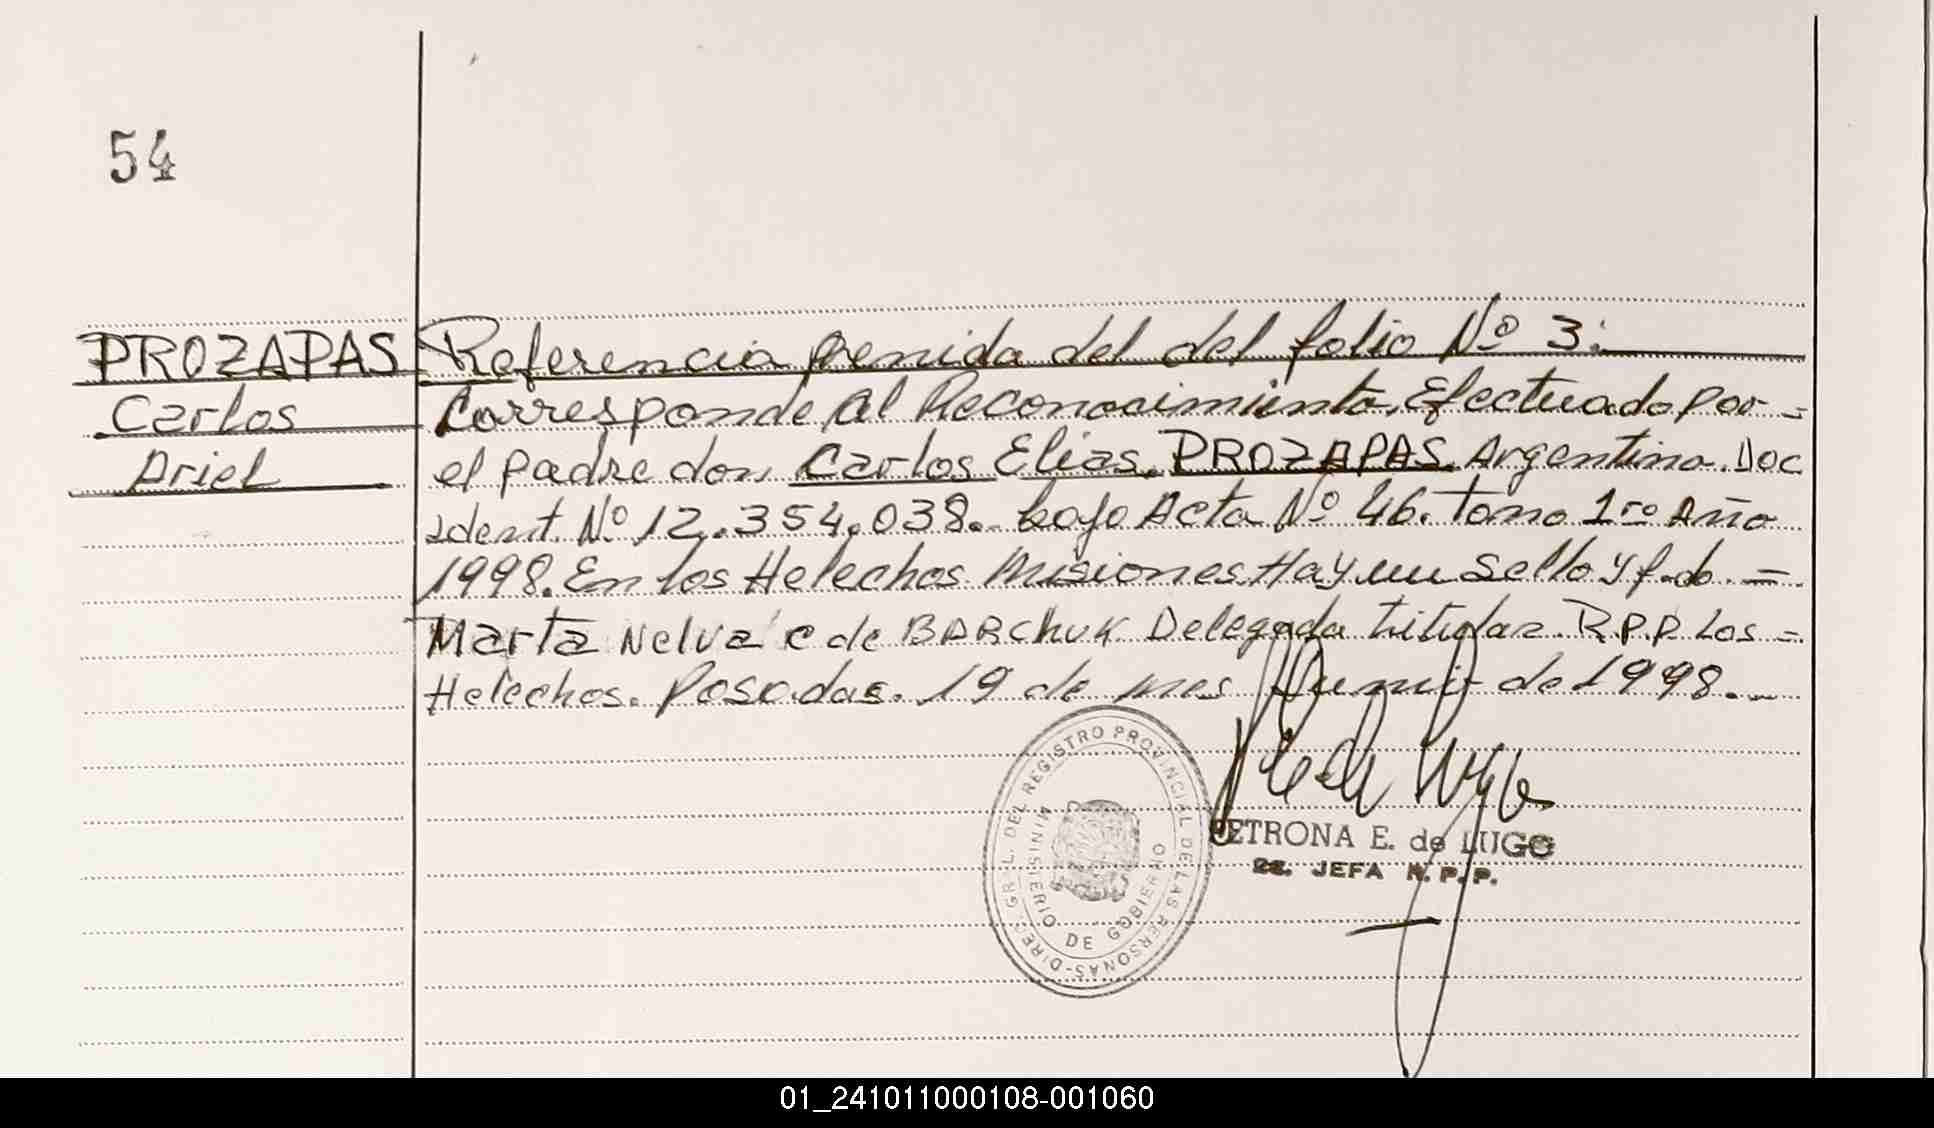 54
PROZAPAS
Carlos
Ariel
Referencia venida del del folio Nº 3.
Corresponde al Reconocimiento, Efectuado por =
el padre don, Carlos Elias, PROZAPAS. Argentino. Doc
ident. Nº 12.354.038. bajo Acta Nº 46. Tomo 1ro Año
1998. En Los Helechos Misiones. Hay un Sello y f.do. =
Marta Nelva C de BARChuK Delegada titular. R.P.P. Los =
Helechos. Posadas. 19 de mes Junio de 1998.-
DIREC. GRAL. DEL REGISTRO PROVINCIAL DE LAS PERSONAS
MINISTERIO DE GOBIERNO
PETRONA E. de LUGO
2a. JEFA R.P.P.
01_241011000108-001060